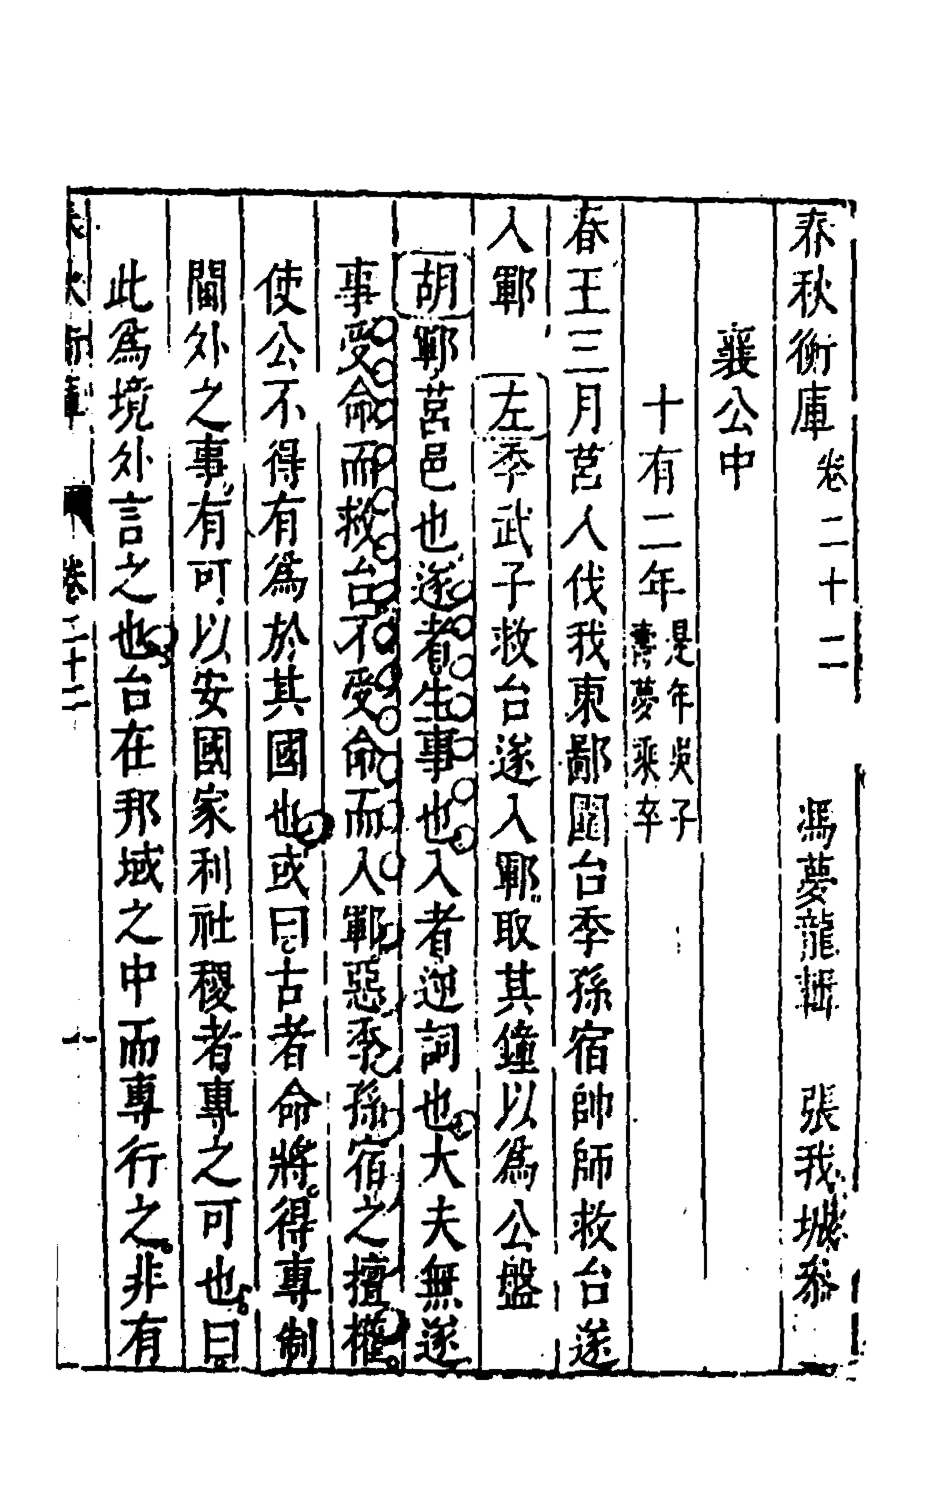 春秋衡庫卷二十二 馮夢龍輯 張我城叅
襄公中
十有二年是年吳子壽夢乘卒
春王三月莒人伐我東鄙圍台季孫宿帥師救台遂
入鄆 左季武子救台遂入鄆取其鐘以為公盤
胡鄆莒邑也遂者生事也入者逆詞也大夫無遂
事受命而救台不受命而入鄆惡季孫宿之擅權
使公不得有為於其國也或曰古者命將得專制
閫外之事有可以安國家利社稷者專之可也曰
此為境外言之也台在邦域之中而專行之非有
春秋衡庫 卷二十二 一